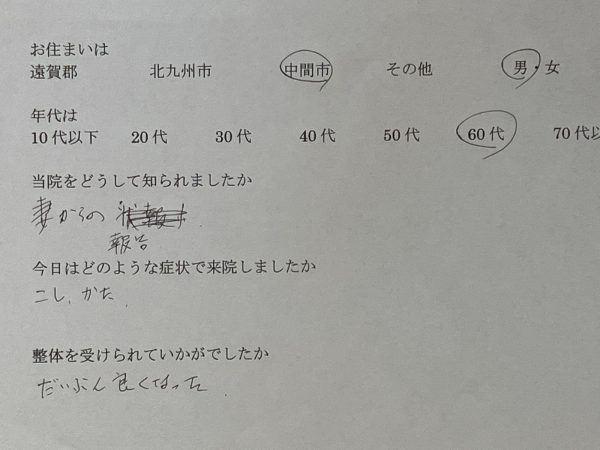 お住まいは
遠賀郡 北九州市 中間市 その他 男・女
年代は
10代以下 20代 30代 40代 50代 60代 70代以
当院をどうして知られましたか
妻からの
報告
今日はどのような症状で来院しましたか
こし、かた
整体を受けられていかがでしたか
だいぶん良くなった